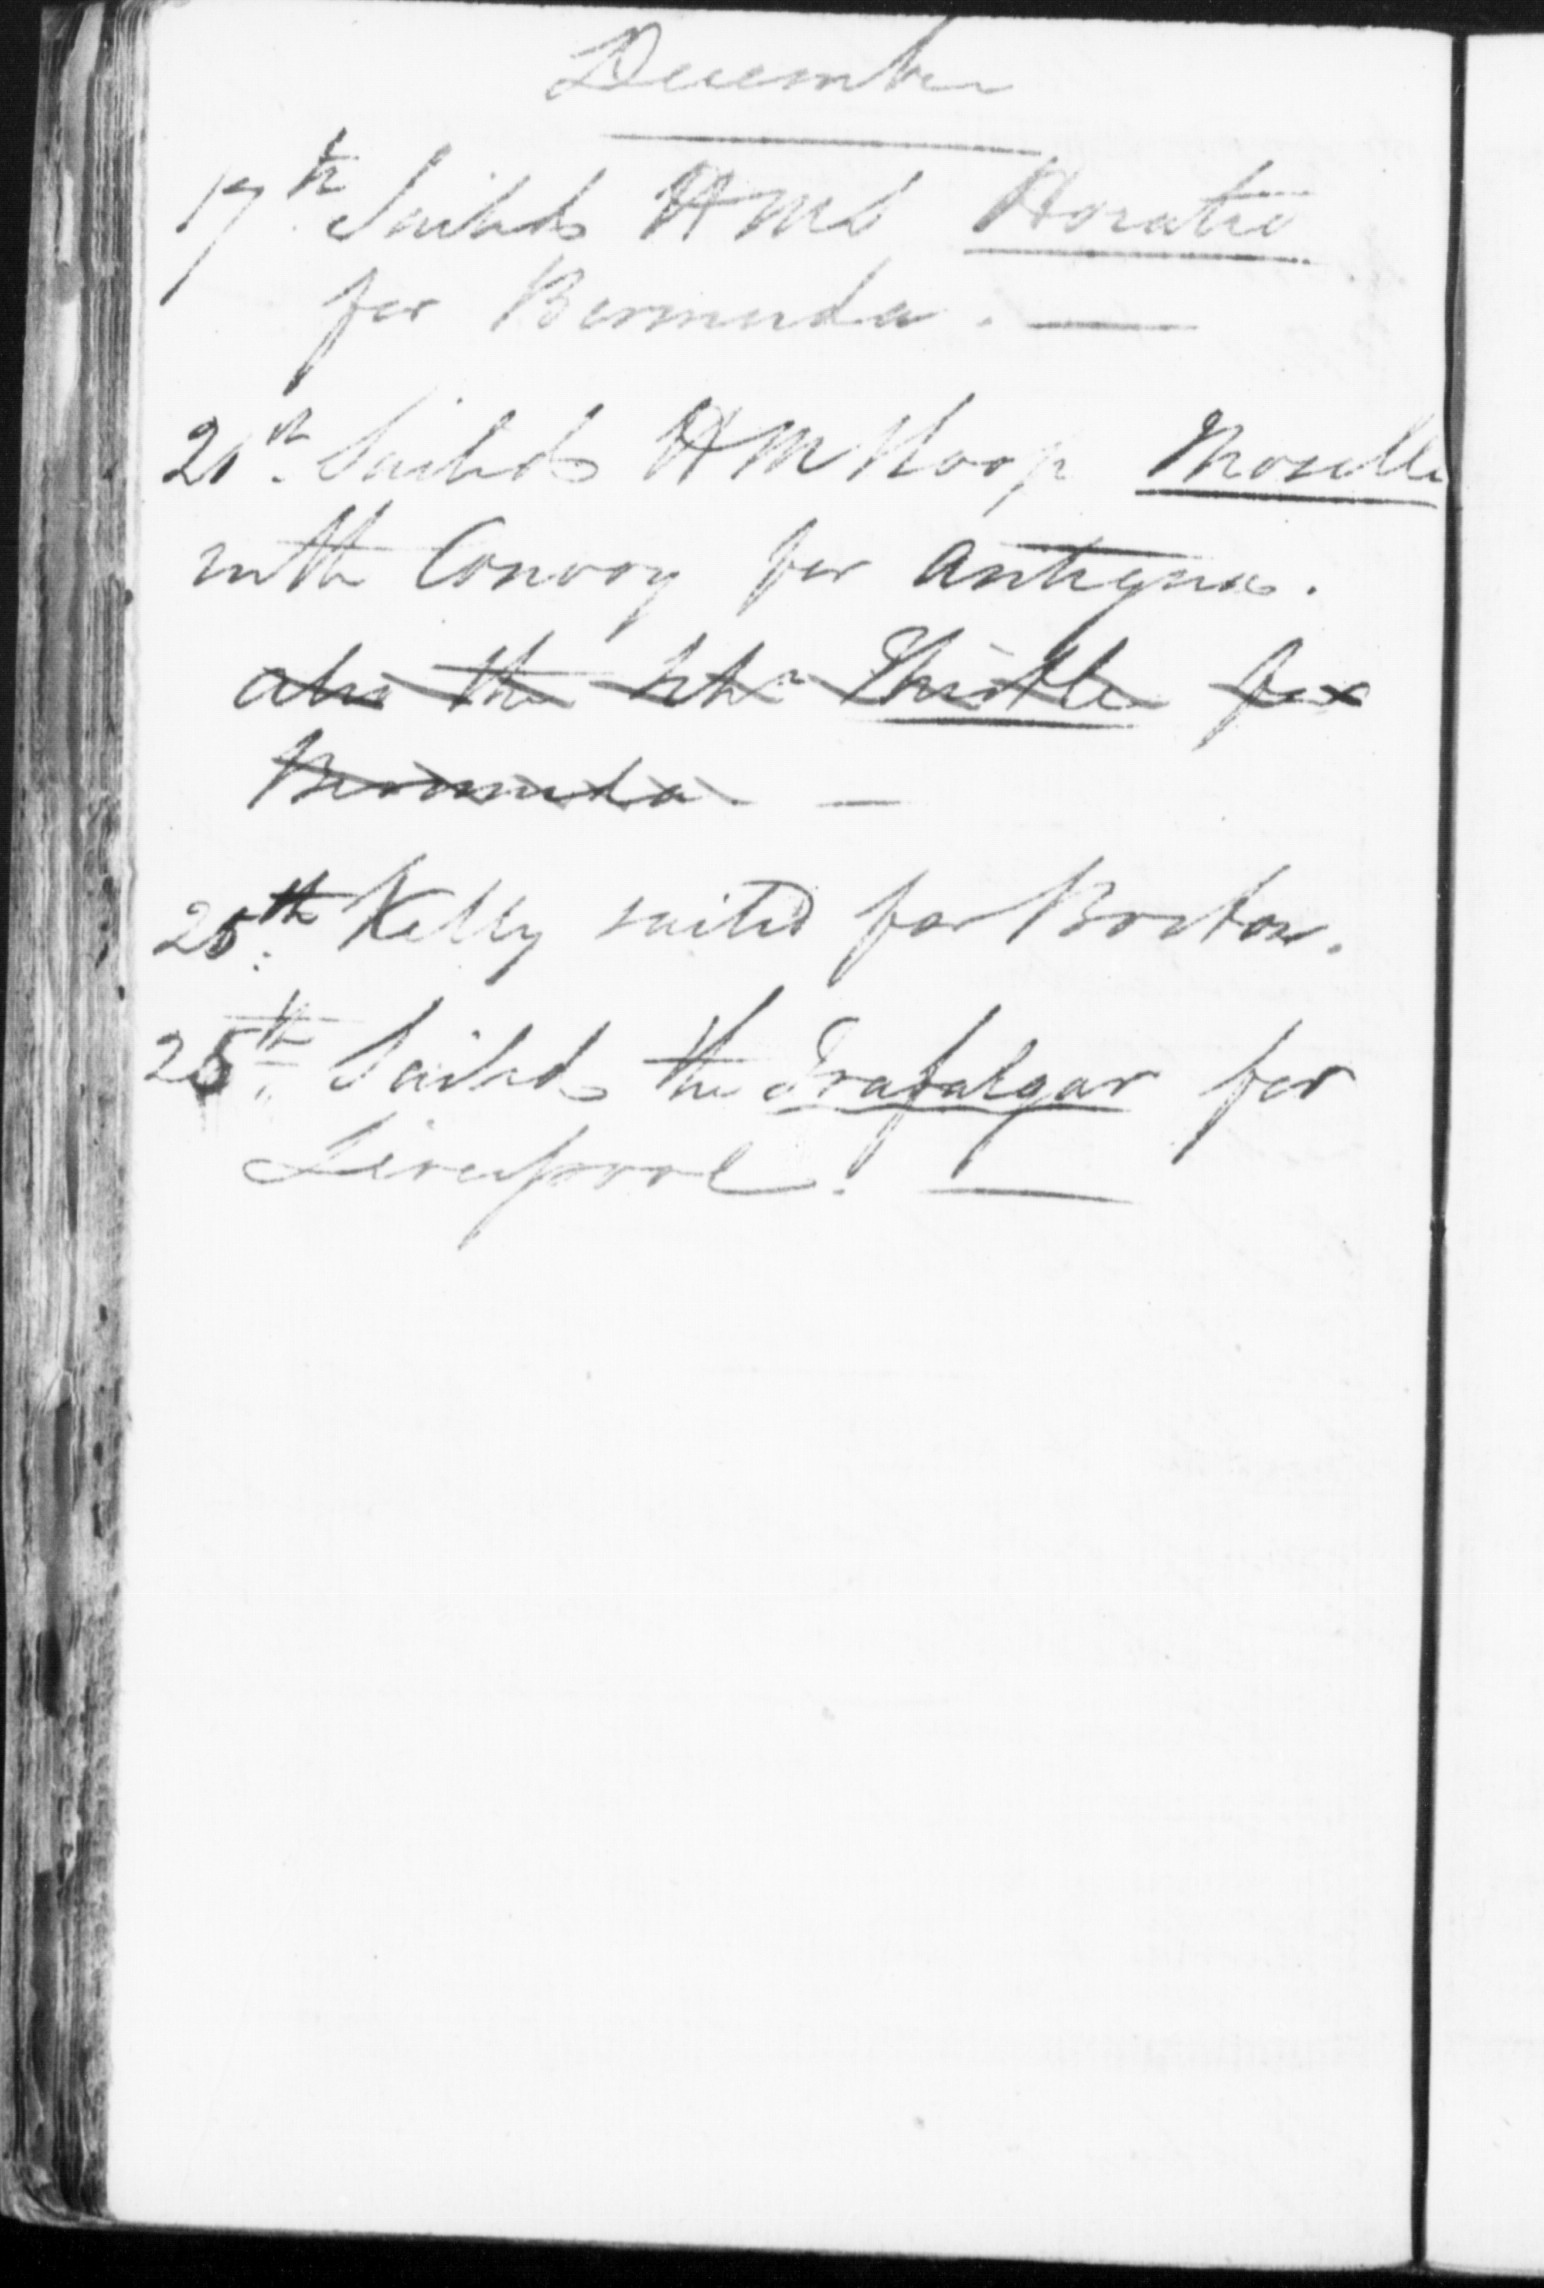 December
17th Sailed HMS Horatio
for Bermuda. —
21st Sailed HM Sloop Moselle
with Convoy for Antigua.
also the Schr Thistle for
Bermuda. —
25th Kelly sailed for Boston.
25th Sailed the Trafalgar for
Liverpool. —